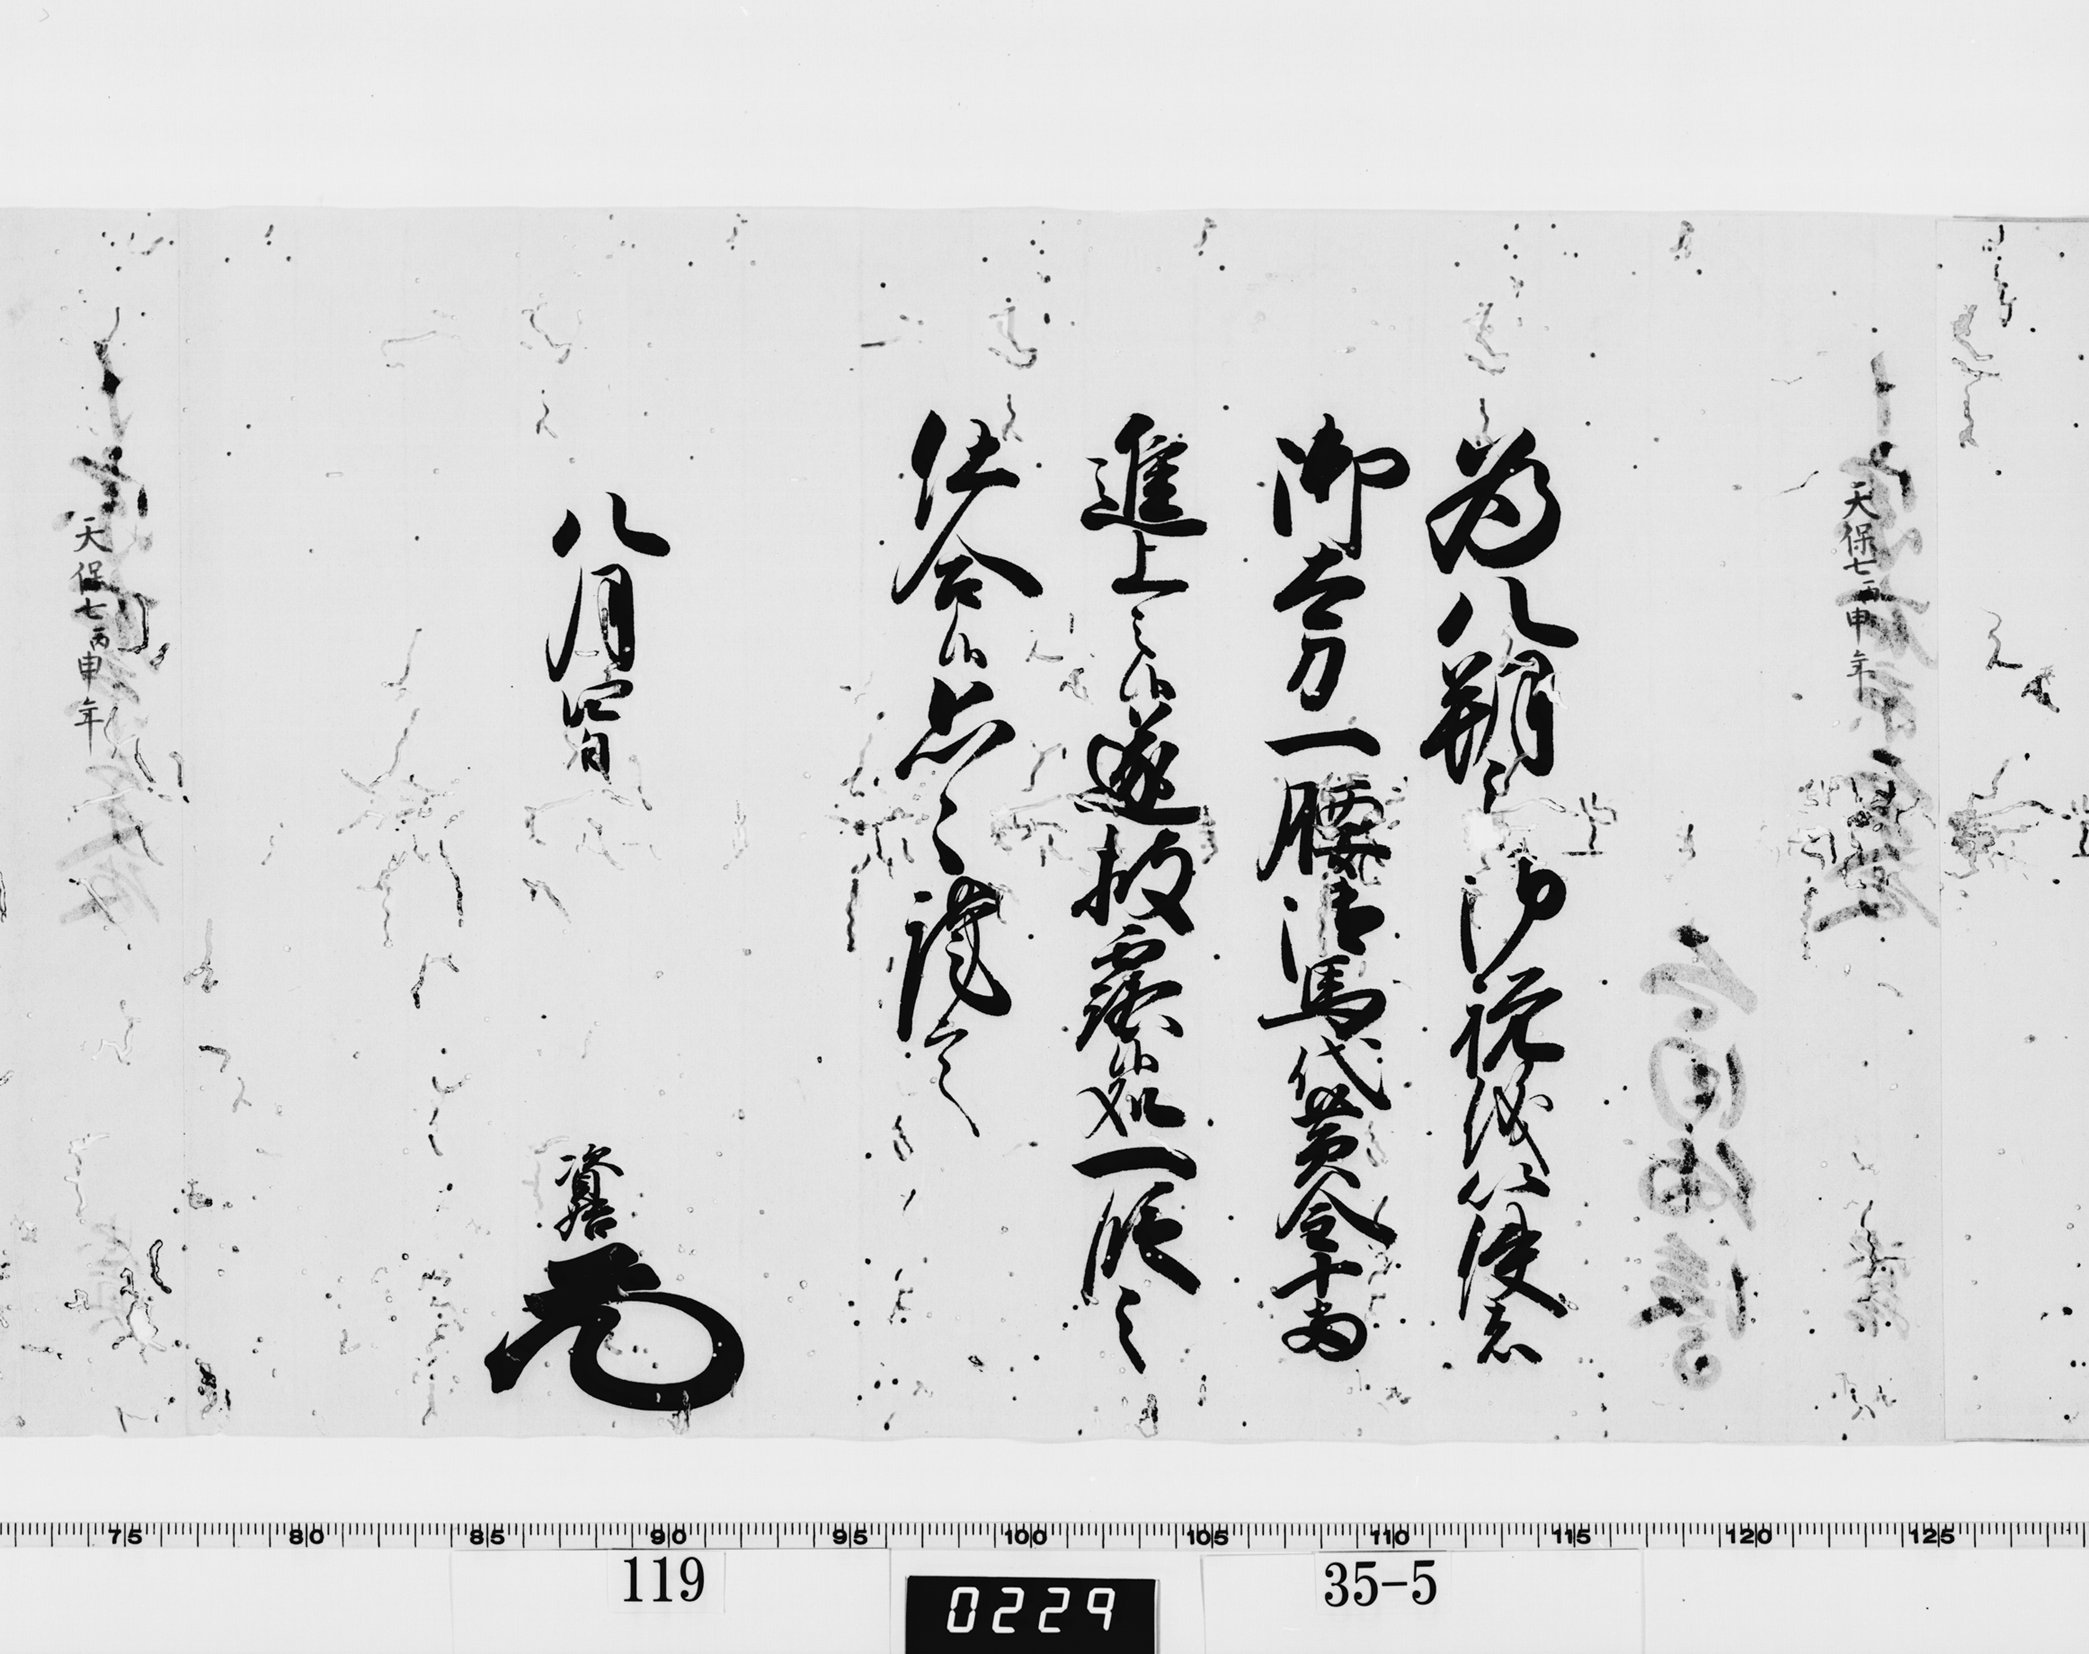 天保七丙申年
為八朔之御祝儀以使者
御太刀一腰御馬代黄金十両
進上之候遂披露候処一段之
仕合候恐々謹言
八月四日
資始
天保七丙申年
75 80 85 90 95 100 105 110 115 120 125
119
0229
35-5